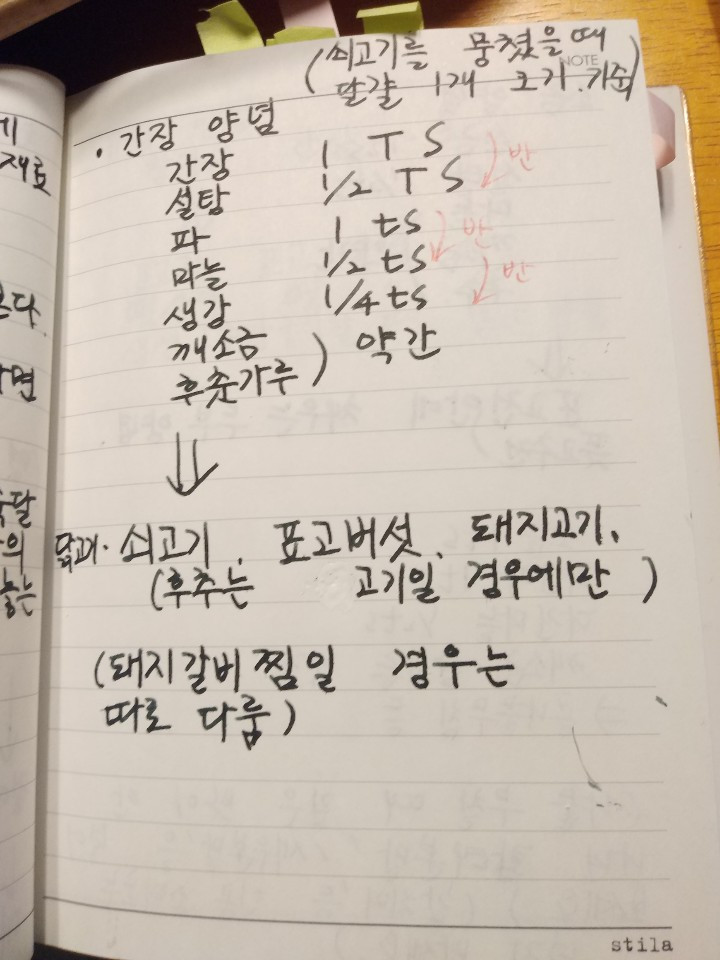 (쇠고기를 뭉쳤을때
NOTE
달걀 1개 크기.기준)
• 간장 양념
간장 1 TS
설탕 1/2 TS 반
파 1 ts
마늘 1/2 ts 반
생강 1/4 ts 반
깨소금
후춧가루 ) 약간
⇓
닭고기. 쇠고기. 표고버섯. 돼지고기.
(후추는 고기일 경우에만)
(돼지갈비찜일 경우는
따로 다룸)
stila
재료